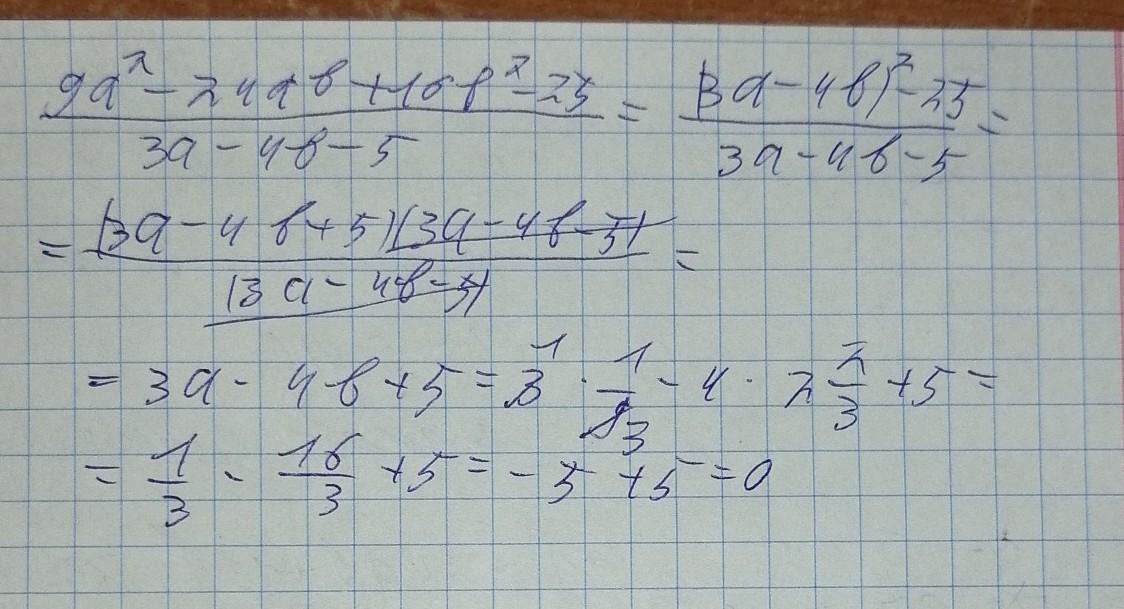 9a² - 24ab + 16b² - 25 = (3a - 4b)² - 25 =
3a - 4b - 5 3a - 4b - 5
= (3a - 4b + 5)(3a - 4b - 5) =
(3a - 4b - 5)
= 3a - 4b + 5 = 3 1 · 1/9 3 - 4 · 2 2/3 + 5 =
= 1/3 - 16/3 + 5 = -5 + 5 = 0